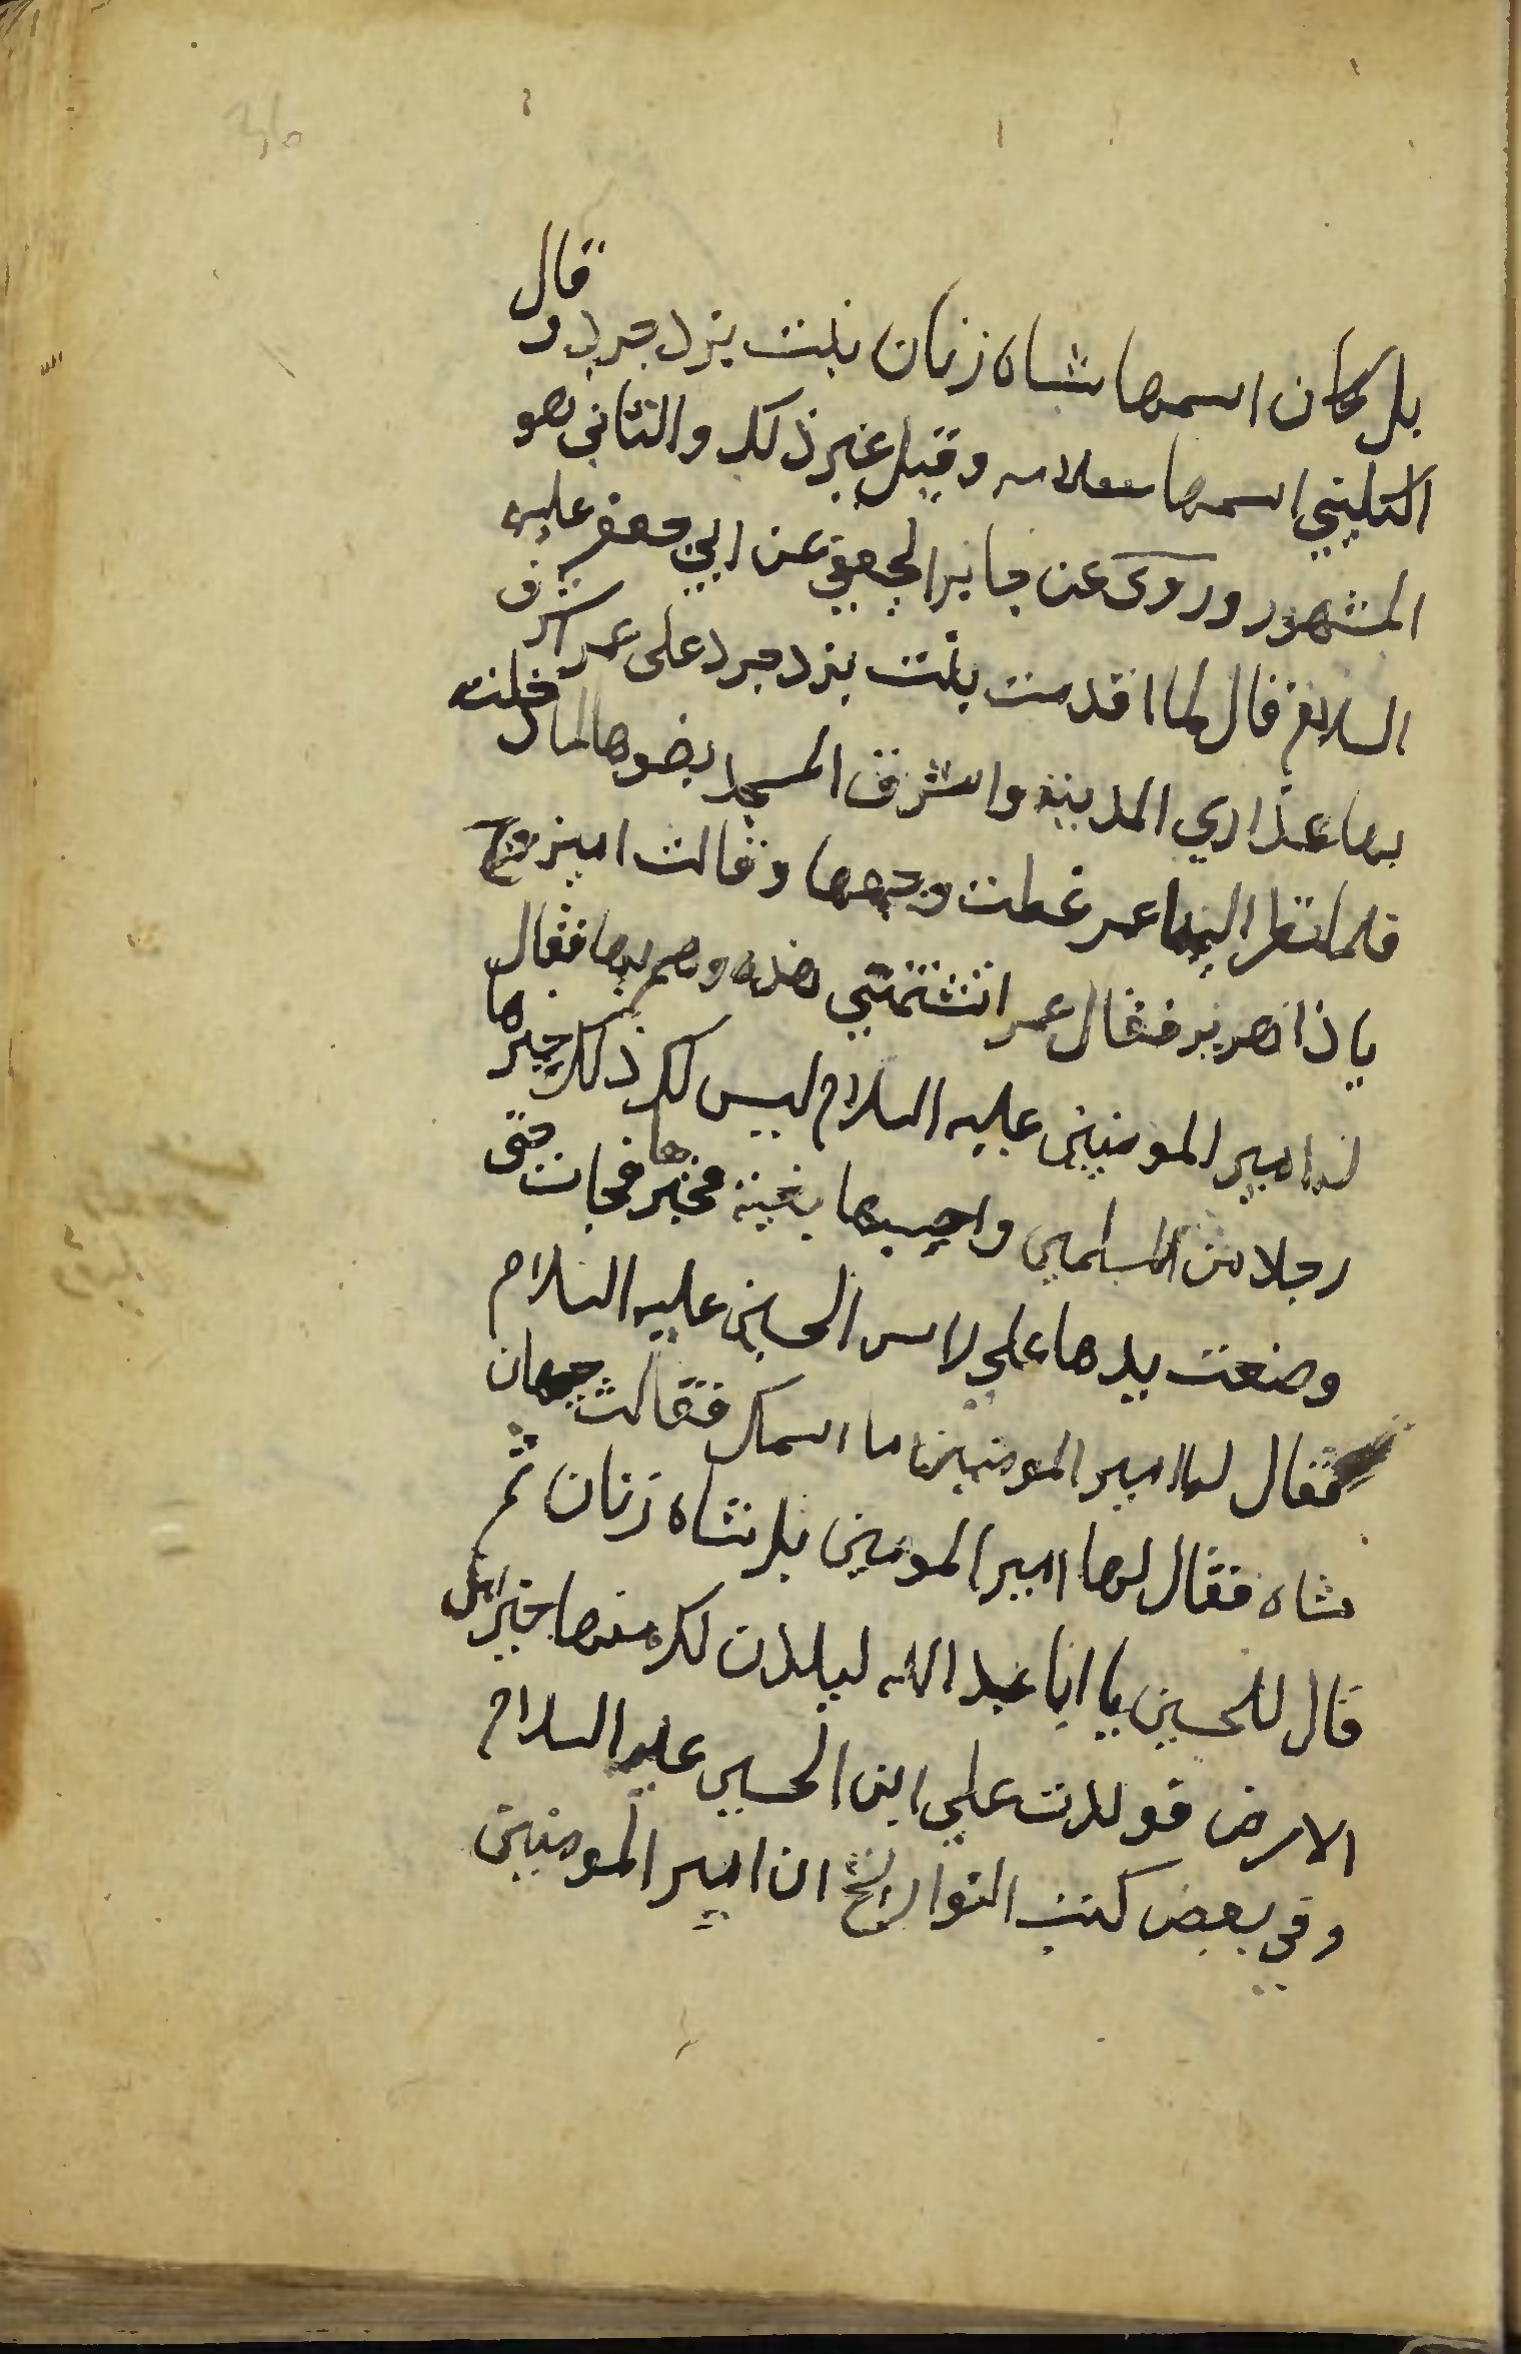 بل كان اسمها شاه زنان بنت يزدجرد وقال
الكليني اسمها سلامه وقيل غير ذلك والثاني هو
المشهور وروى عن جابر الجعفي عن ابي جعفر عليه
السلام قال لما اقدمت بنت يزدجرد على عمر اشرف
بها عذاري المدينة واشرف المسجد بضوها لما دخلته
فلما نظر اليها عمر غطت وجهها وقالت
يا ذا هرمز فقال عمر اتشتمني هذه وهم بها فقال
له امير المومنين عليه السلام ليس لك ذلك خيرها
رجلا من المسلمين واحسبها بفيئه فخيرها فجات حتى
وضعت يدها على راس الحسين عليه السلام
فقال لها امير المومنين ما اسمك فقالت جهان
شاه فقال لها امير المومنين بل شاه زنان ثم
قال للحسين يا ابا عبد الله ليلدن لك منها خير اهل
الارض فولدت علي ابن الحسين عليه السلام
وفي بعض كتب التواريخ ان امير المومنين